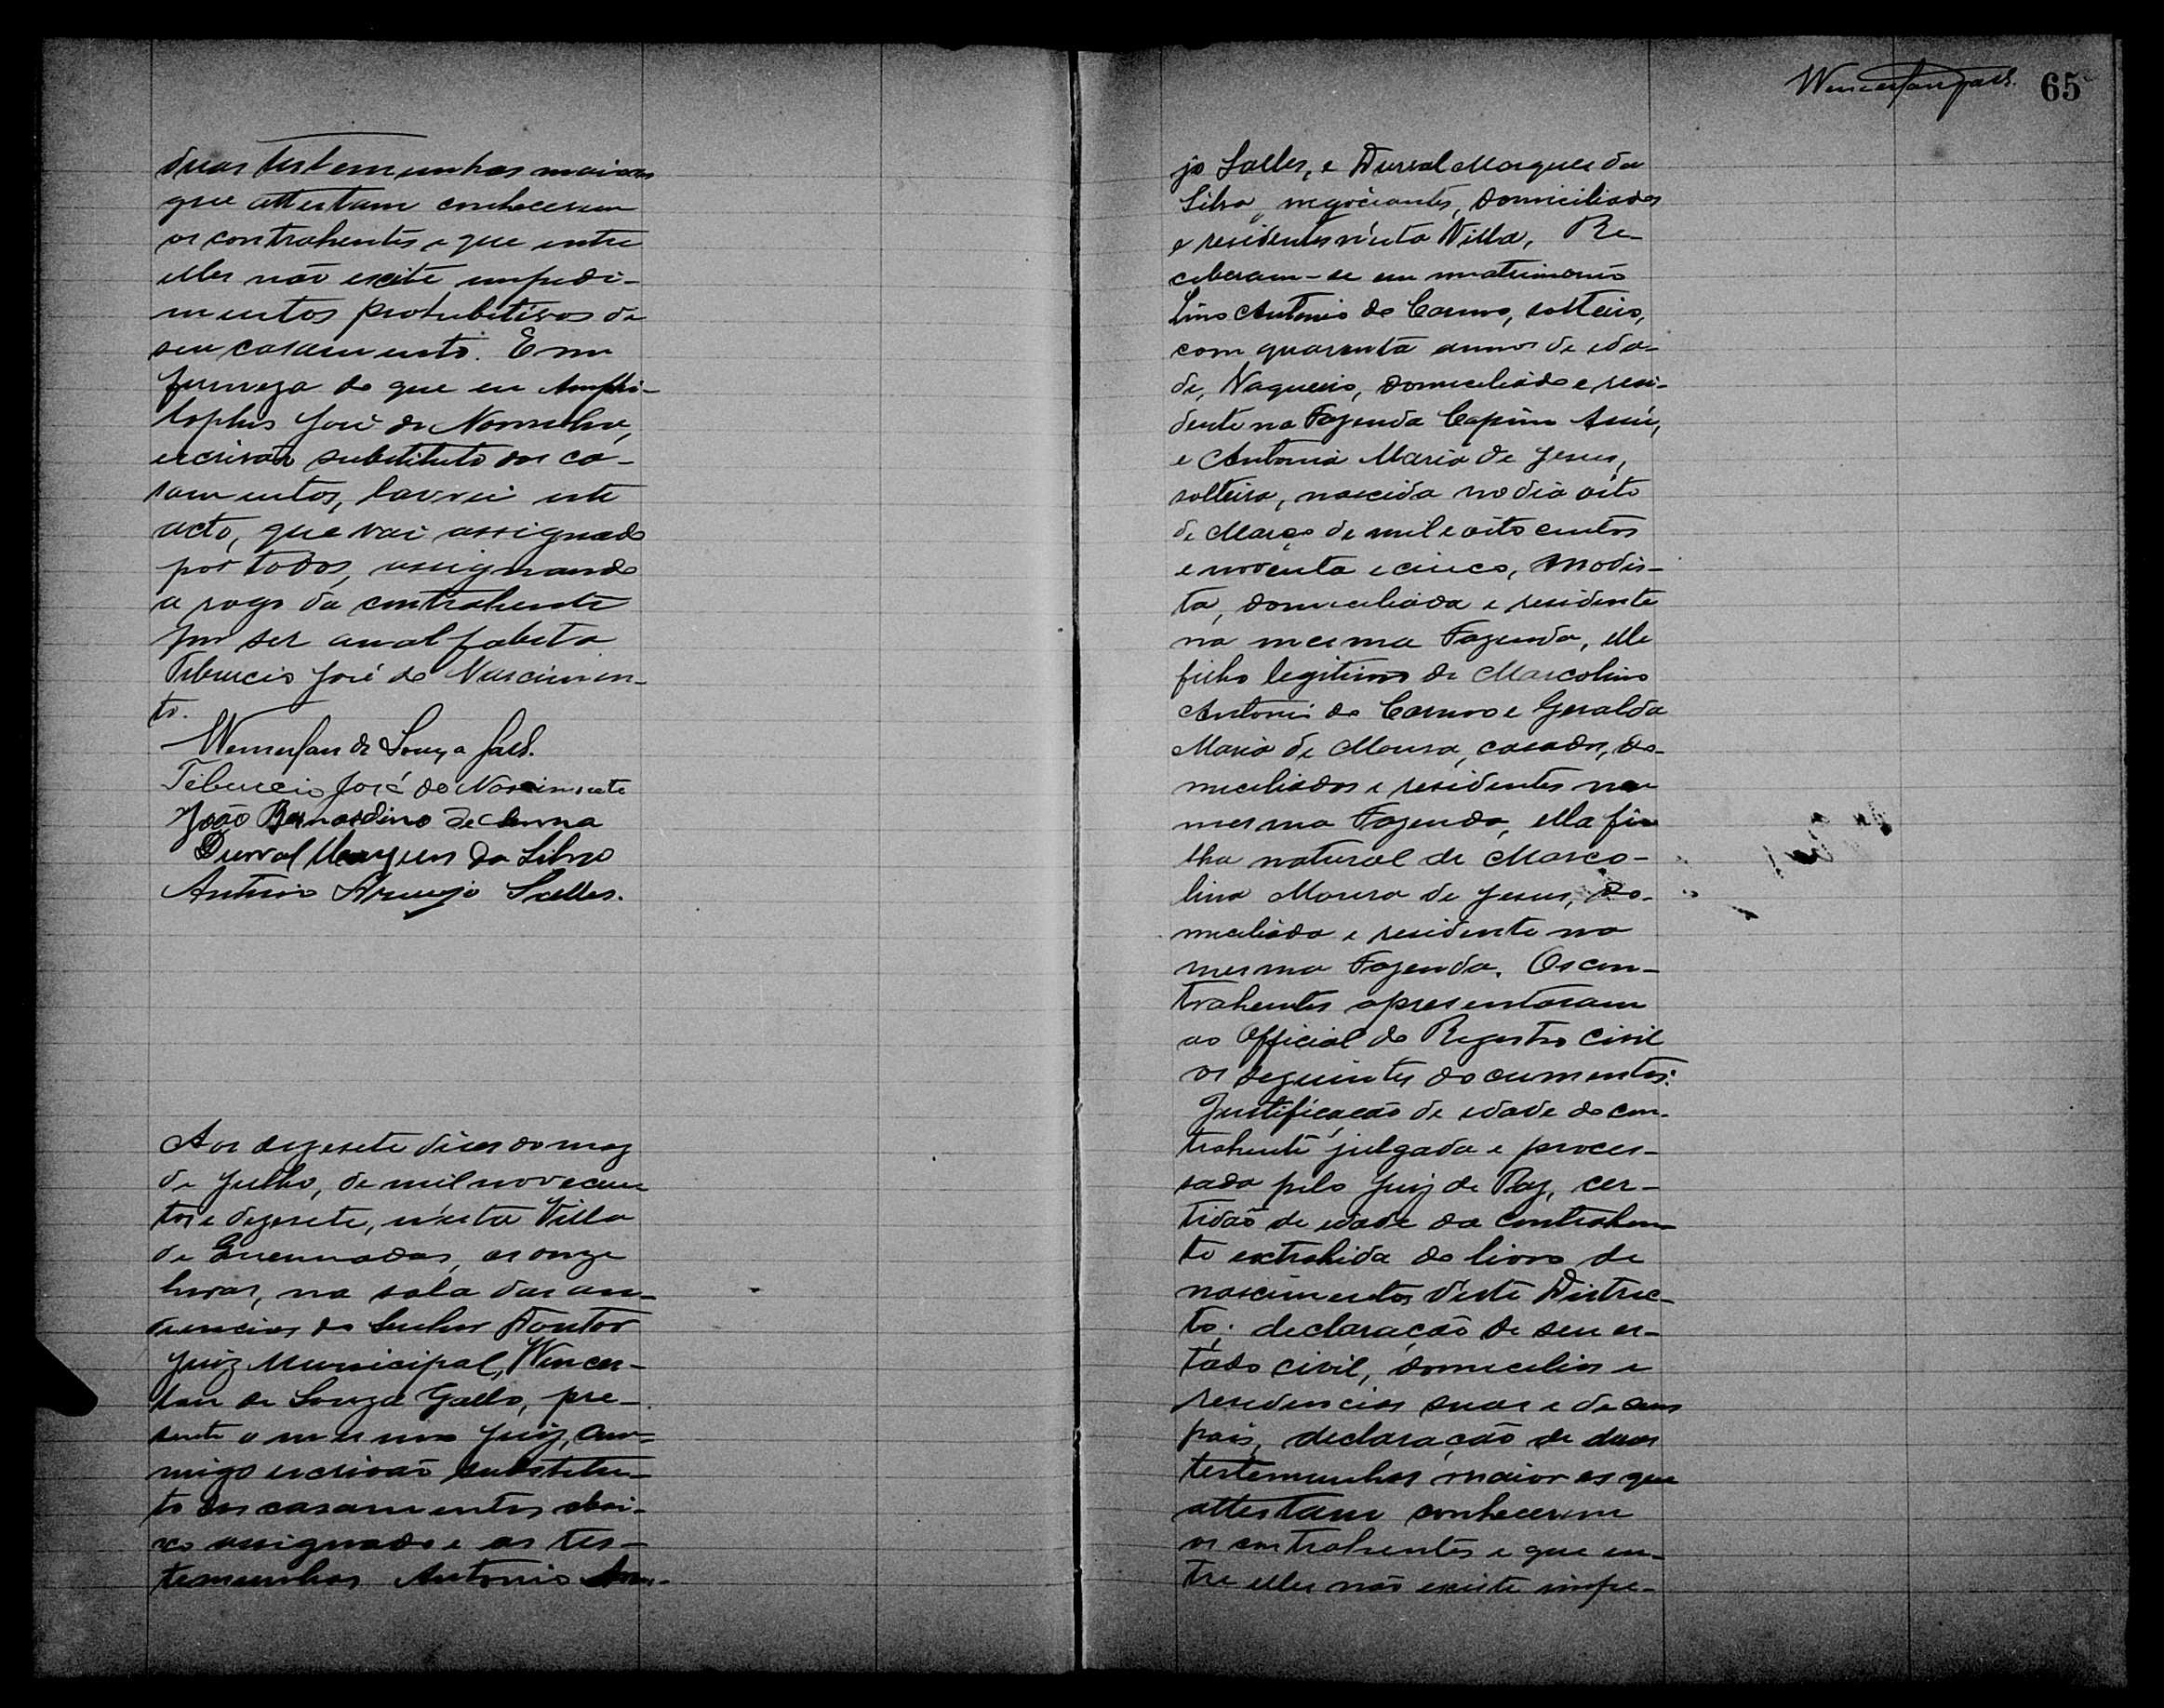 duas testemunhas maiores
que attestam conhecerem
os contrahentes e que entre
elles não existe impedi-
mentos prohibitivos de
seu casamento. E em
firmeza do que eu Amphi-
lophio José de Noronha,
escrivão substituto dos ca-
samentos, lavrei este
acto, que vai assignado
por todos, assignando
a rogo da contrahente
por ser analfabeta
Tiburcio José do Nascimen-
to.
Wencesláu de Souza Gallo.
Tiburcio José do Nascimento
João Bernardino de
Durval Marques da Silva
Antonio Araujo Salles.
Aos dezesete dias do mez
de Julho, de mil novecen
tos e dezesete, n'esta Villa
de Entre as onze
horas, na sala das au-
diencias do Senhor Doutor
Juiz Municipal, Wences-
lau de Souza Gallo, pre-
sente o mesmo Juiz, com-
migo escrivão substitu-
to dos casamentos abai-
xo assignado e as tes-
temunhas Antonio Arau-
Wenceslau Gallo. 65
jo Salles, e Durval Marques da
Silva, negociantes, domiciliados
e residentes n'esta Villa, Re-
ceberam-se em matrimonio
Lino Antonio do Carmo, solteiro,
com quarenta annos de ida-
de, Vaqueiro, domiciliado e resi-
dente na Fazenda Capim Assú,
e Antonia Maria de Jesus,
solteira, nascida no dia oito
de Março de mil e oito centos
e noventa e cinco, modis-
ta, domiciliada e residente
na mesma Fazenda, elle
filho legitimo de Marcolino
Antonio do Carmo e Geralda
Maria de Moura, casados, do-
miciliados e residentes na
mesma Fazenda, ella fi-
lha natural de Marco-
lina Moura de Jesus, do-
miciliada e residente na
mesma Fazenda. Os con-
trahentes apresentaram
ao Official do Registro Civil
os seguintes documentos:
Justificação de idade do con-
trahente julgada e proces-
sada pelo Juiz de Paz, cer-
tidão de idade da contrahen-
te extrahida do livro de
nascimentos d'este Distric-
to; declaração de seu es-
tado civil, domicilios e
residencias suas e de seus
pais, declaração de duas
testemunhas maiores que
attestam conhecerem
os contrahentes e que en-
tre elles não existe impe-